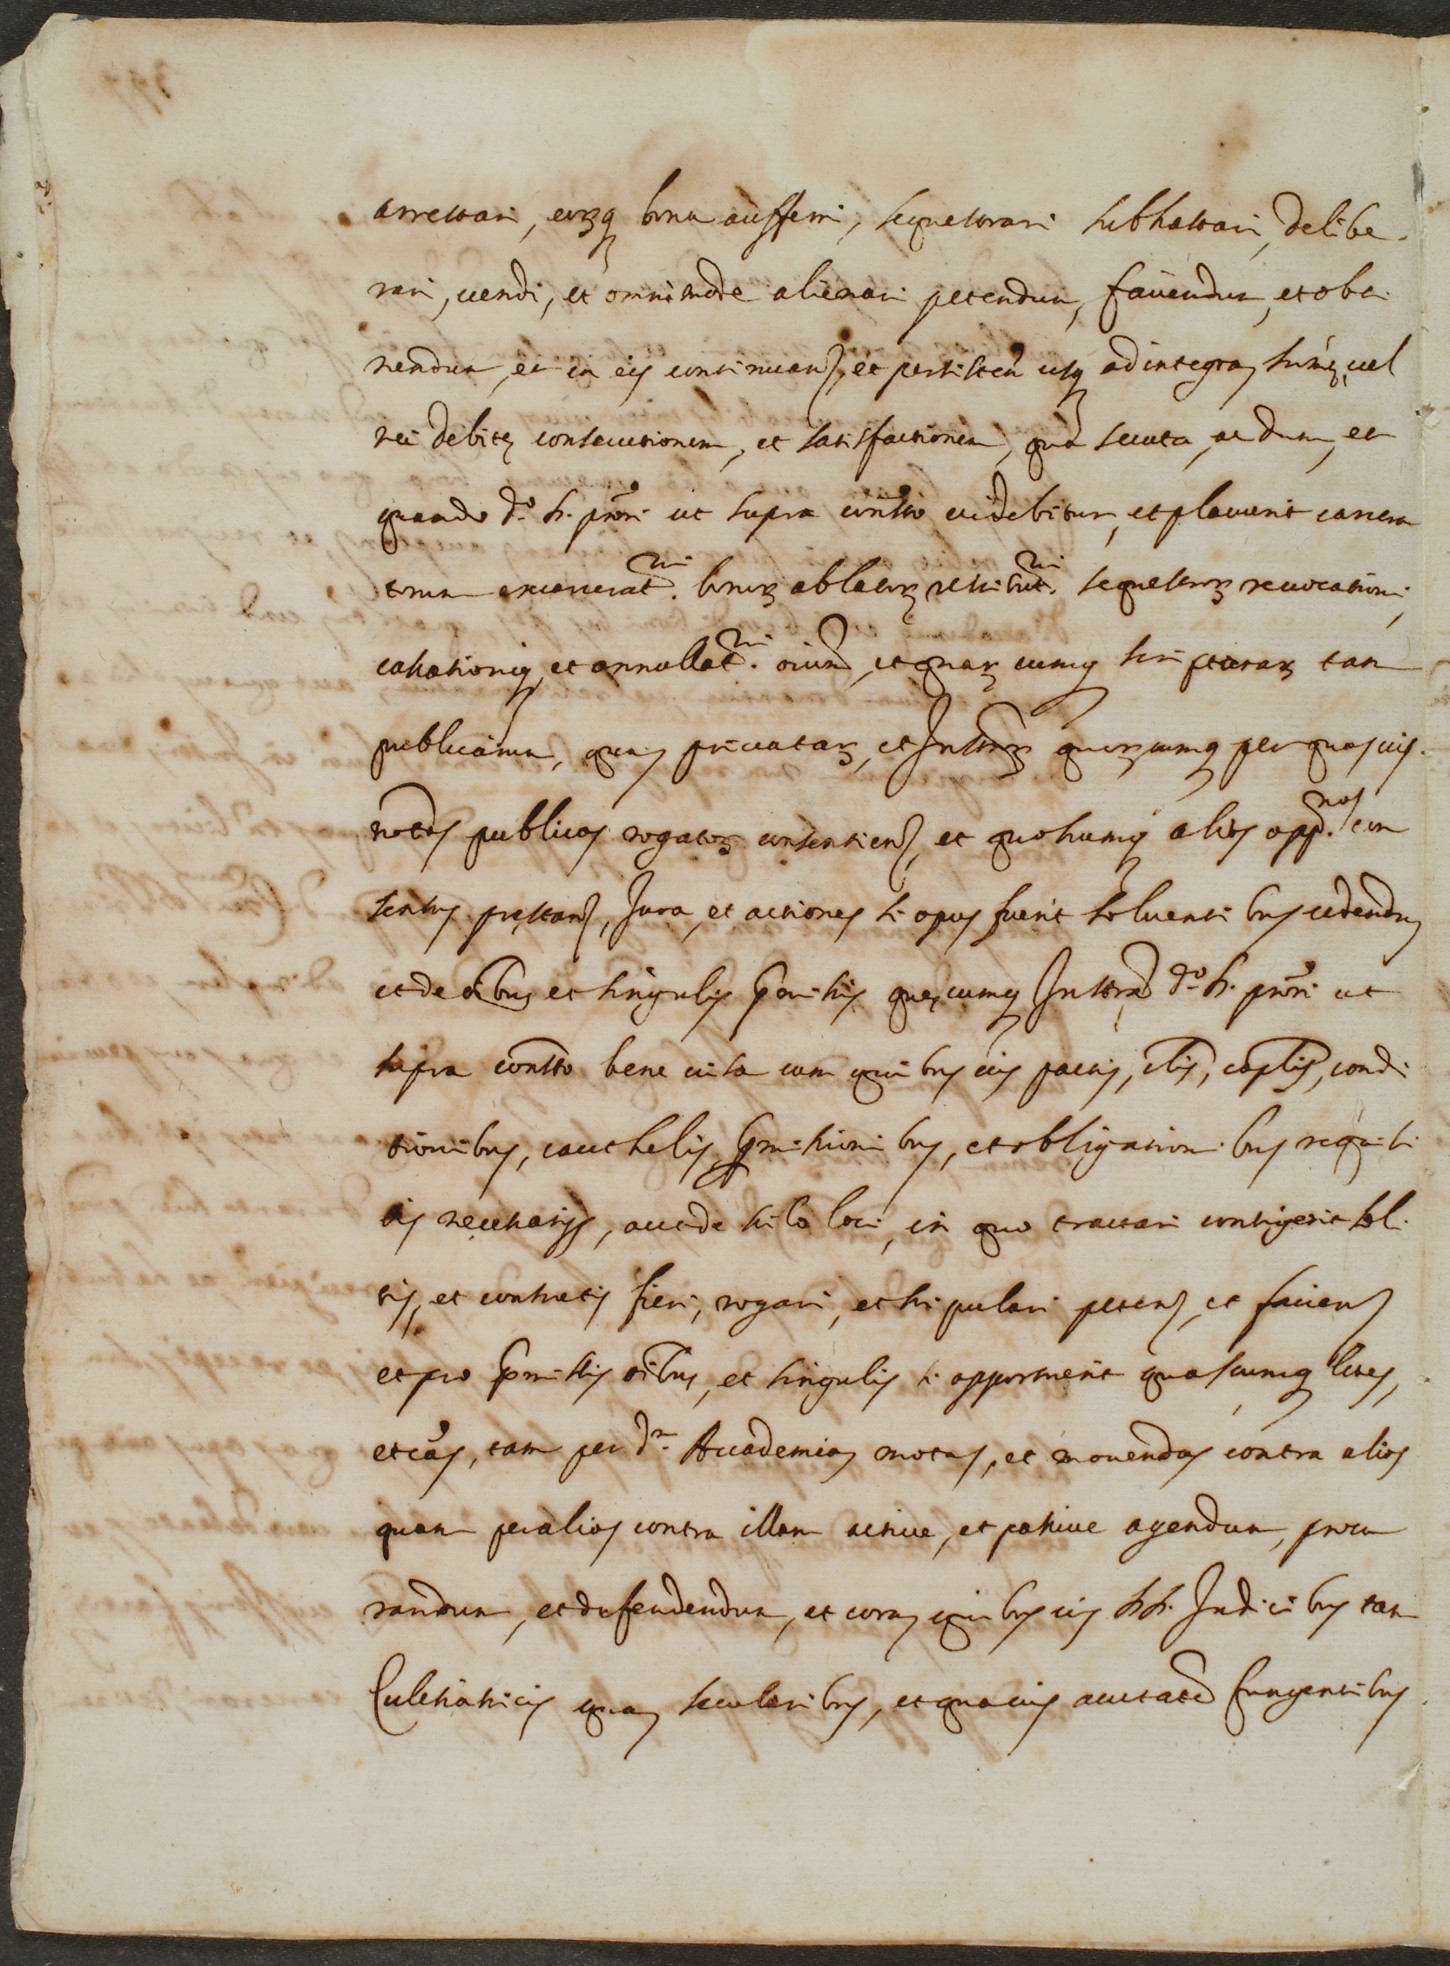 arrestari, eorq₃ bona aufferri, sequestrari subhastari, delibe-
rari, vendi, et omnimode alienari petendum, faciendum, et obti
nendum, et in eis continuan̄, et persisten̄ usq₃ ad integrā sum̄ę, vel
rei debitę consecutionem, et satisfactionem, qua secuta, ac dum, et
quando do. s. prori ut supra constto videbitur, et placuerit carcera
torum excarcerat.ni bonor₃ ablator₃ restitut.ni sequestror₃ revocationi,
cassationiq₃ et annullat.ni oium, et quar₃cumq₃ scripturar₃ tam
publicarum, quā privatar₃, et Instror₃ quor₃cumq₃ per quosvis
notos publicos rogator₃ consentien̄, et quoscumq₃ alios opp.nos con
sensus prestan̄, Jura, et actiones si opus fuerit solventibus cedendū
et de oibus et singulis p̄missis quęcumq₃ Instra do. s. prori ut
supra constto bene visa cum quibusvis pactis, clis, captlis, condi
tionibus, cauthelis, p̄missionibus, et obligationibus requisi
tis necessarijs, aut de stilo loci, in quo tractari contigerit soli
tis, et consuetis fieri, rogari, et stipulari peten̄, et facien̄
et pro p̄missis oibus, et singulis si opportuerit quascumq₃ lites,
et cās, tam per da. Academiā motas, et movendas contra alios
quam per alios contra illam active, et passive agendum, procu
randum, et defendendum, et corā quibusvis ss. Judicibus tam
Eccleshasticis quā secularibus, et quavis auctate fungentibus